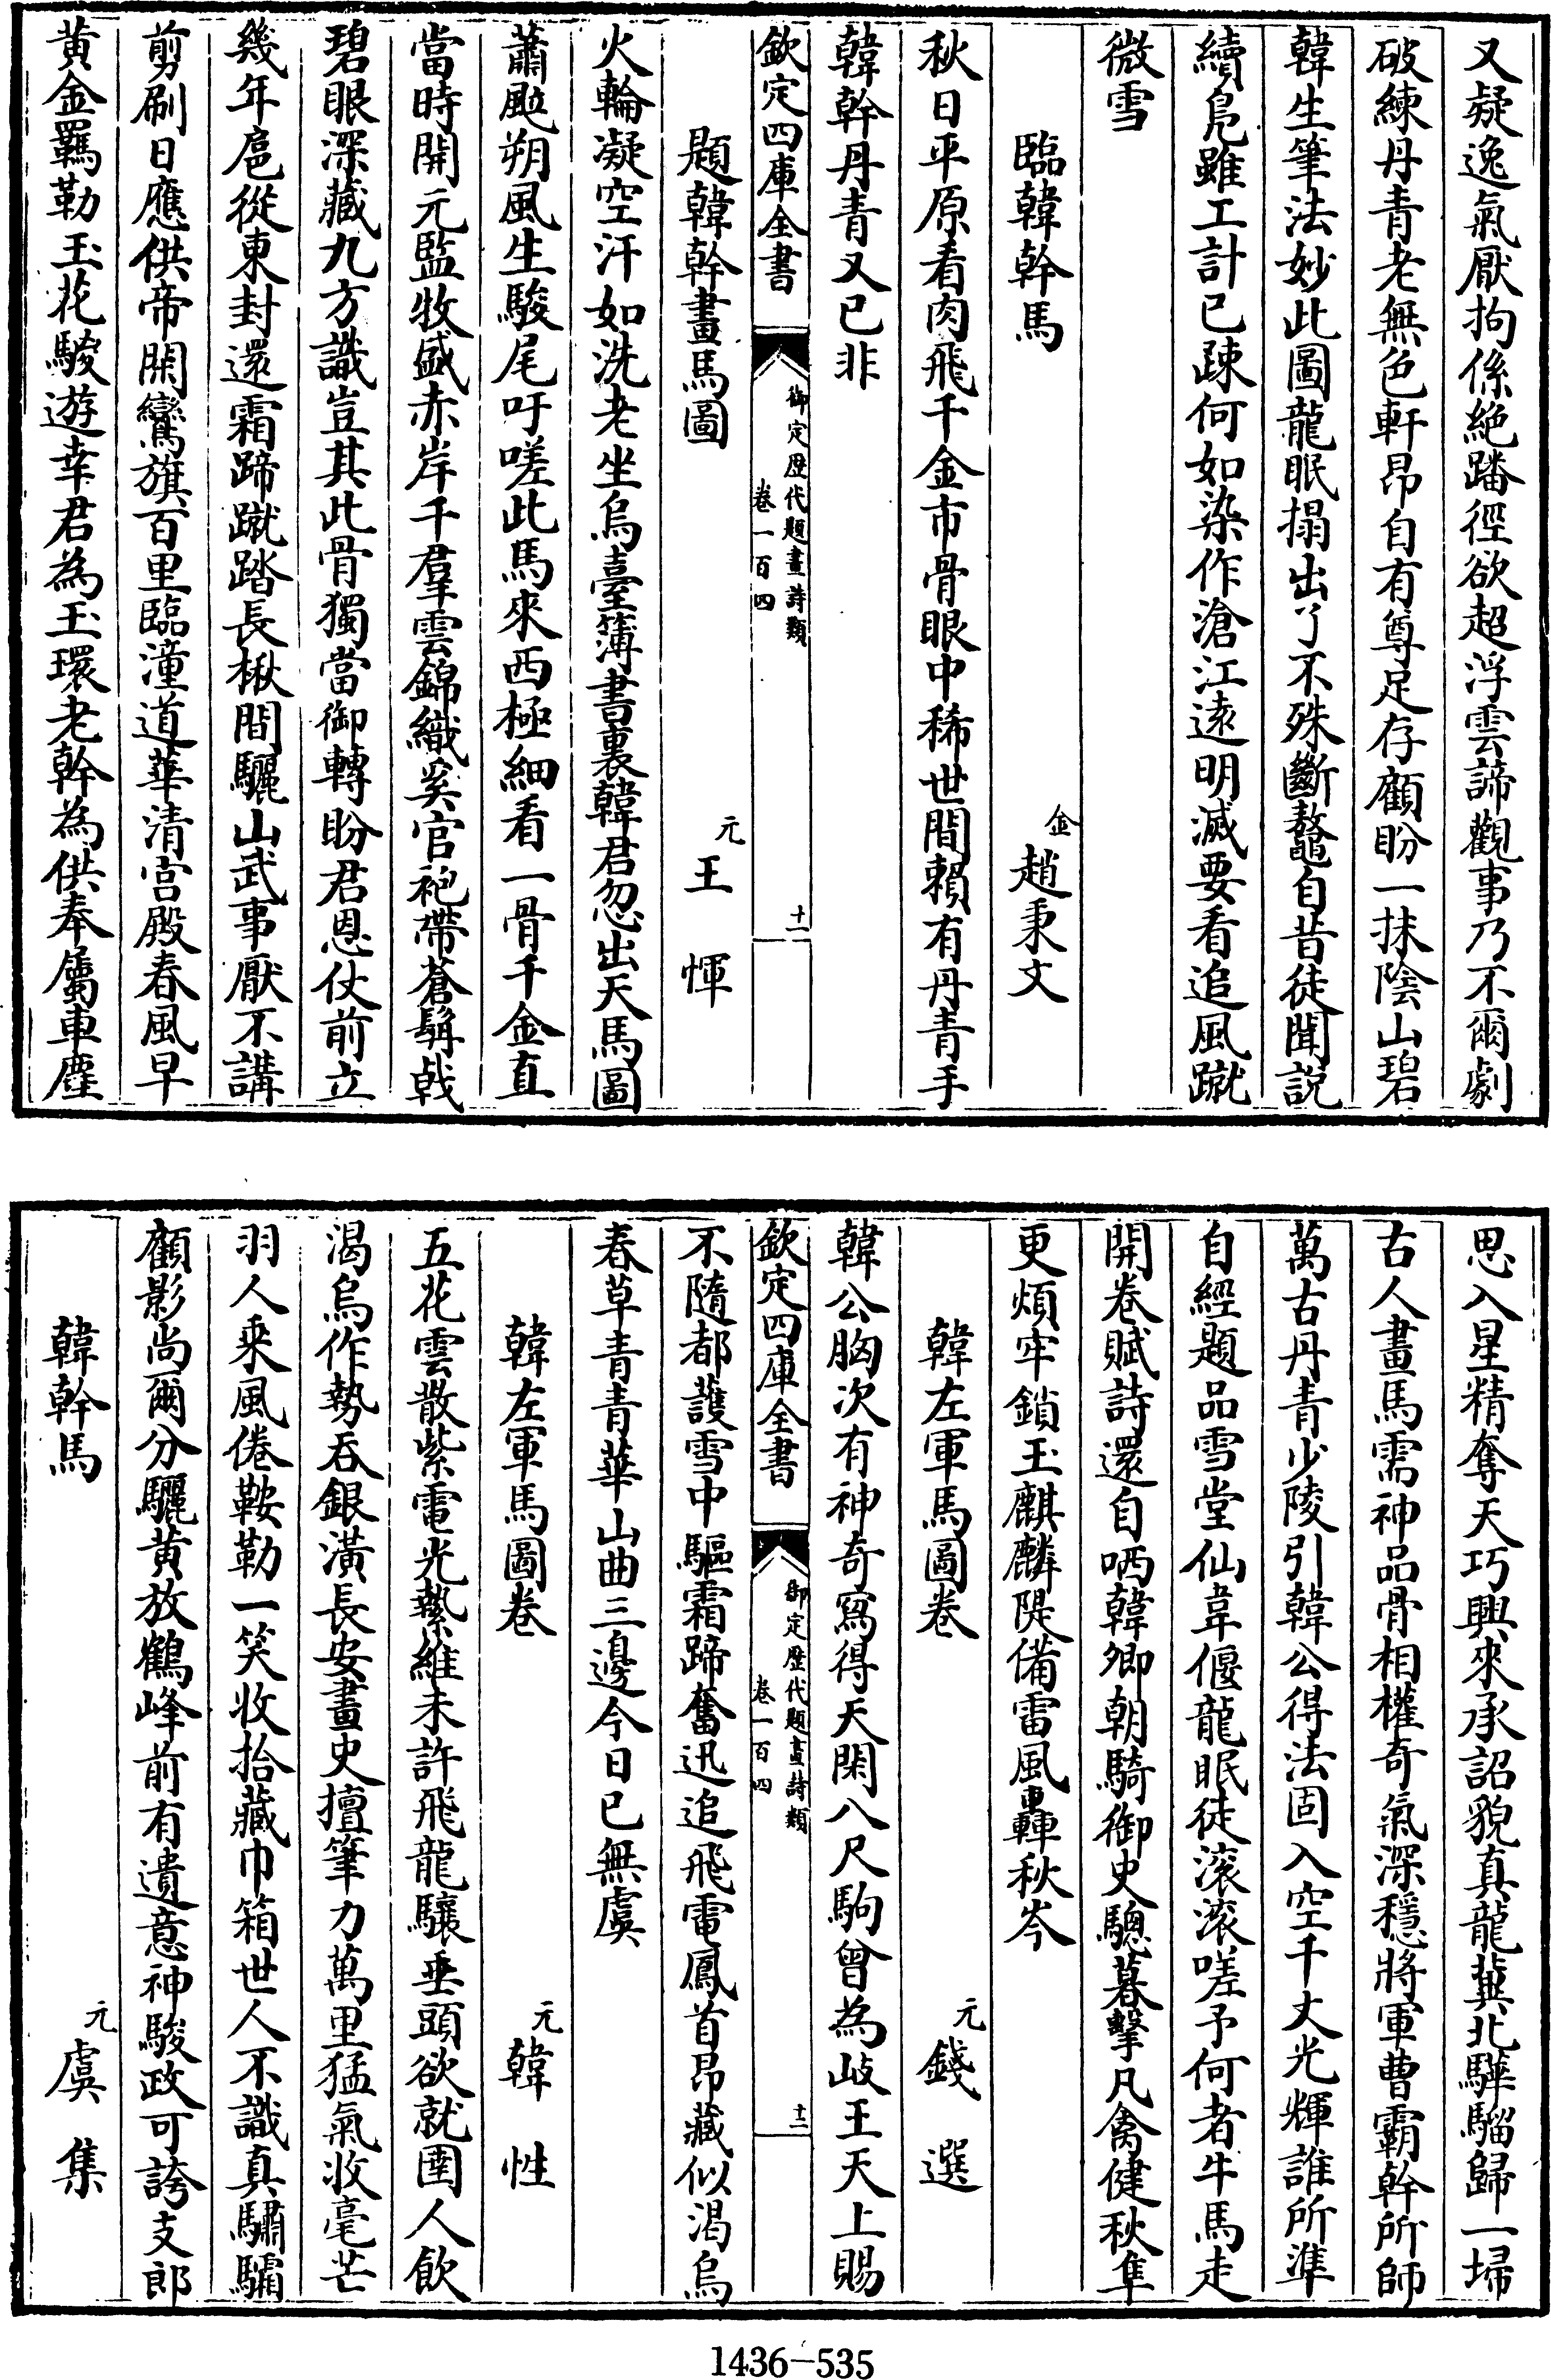 又凝逸氣厭拘係絶踏徑欲超浮雲諦觀事乃不爾劇
破練丹青老無色軒昂自有尊足存顧盼一抹陰山碧
韓生筆法妙此圖龍眠搨出了不殊斷鼇自昔徒聞説
續鳬雖工計已疎何如染作滄江遠明滅要看追風蹴
微雪
臨韓幹馬
金趙秉文
秋日平原看肉飛千金市骨眼中稀世間賴有丹青手
韓幹丹青又已非
欽定四庫全書
御定歴代題畫詩類
卷一百四
十一
題韓幹畫馬圖
元王惲
火輪凝空汗如洗老坐烏臺簿書裏韓君忽出天馬圖
蕭颭朔風生駿尾吁嗟此馬來西極細看一骨千金直
當時開元監牧盛赤岸千羣雲錦織奚官袍帶蒼髯戟
碧眼深藏九方識豈其此骨獨當御轉盼君恩仗前立
幾年扈從東封還霜蹄蹴踏長楸間驪山武事厭不講
剪刷日應供帝閑鸞旗百里臨潼道華清宮殿春風早
黄金羈勒玉花駿遊幸君為玉環老幹為供奉屬車塵
思入星精奪天巧興來承詔貌真龍冀北驊騮歸一埽
古人畫馬需神品骨相權奇氣深穩將軍曹霸幹所師
萬古丹青少陵引韓公得法固入空千丈光輝誰所準
自經題品雪堂仙韋偃龍眠徒滚滚嗟予何者牛馬走
開卷賦詩還自哂韓卿朝騎御史驄暮擊凡禽健秋隼
更煩牢鎖玉麒麟隄備雷風轟秋岑
韓左軍馬圖卷
元錢選
韓公胸次有神奇寫得天閑八尺駒曾為岐王天上賜
欽定四庫全書
御定歴代題畫詩類
卷一百四
十二
不隨都護雪中驅霜蹄奮迅追飛電鳳首昂藏似渴烏
春草青青華山曲三邊今日已無虞
韓左軍馬圖卷
元韓性
五花雲散紫電光縶維未許飛龍驤垂頭欲就圉人飲
渴烏作勢吞銀潢長安畫史擅筆力萬里猛氣收毫芒
羽人乗風倦鞍勒一笑收拾藏巾箱世人不識真驌驦
顧影尚爾分驪黄放鶴峰前有遺意神駿政可誇支郎
韓幹馬
元虞集
1436-535